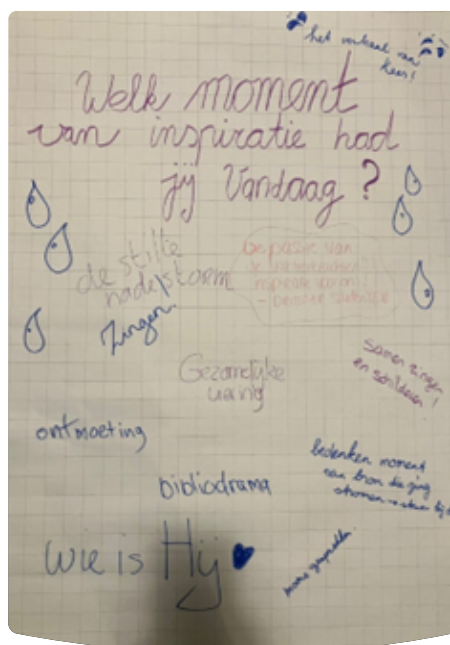 het verhaal van
Kees!
Welk moment
van inspiratie had
jij vandaag?
de stilte
nadelstorm
Zingen
De passie van
inspiratie
Gezamelijke
viering
samen zingen
en schilderen!
ontmoeting
bedenken moment
van bron die ging
stromen
bibliodrama
wie is Hij
mooie gesprekken